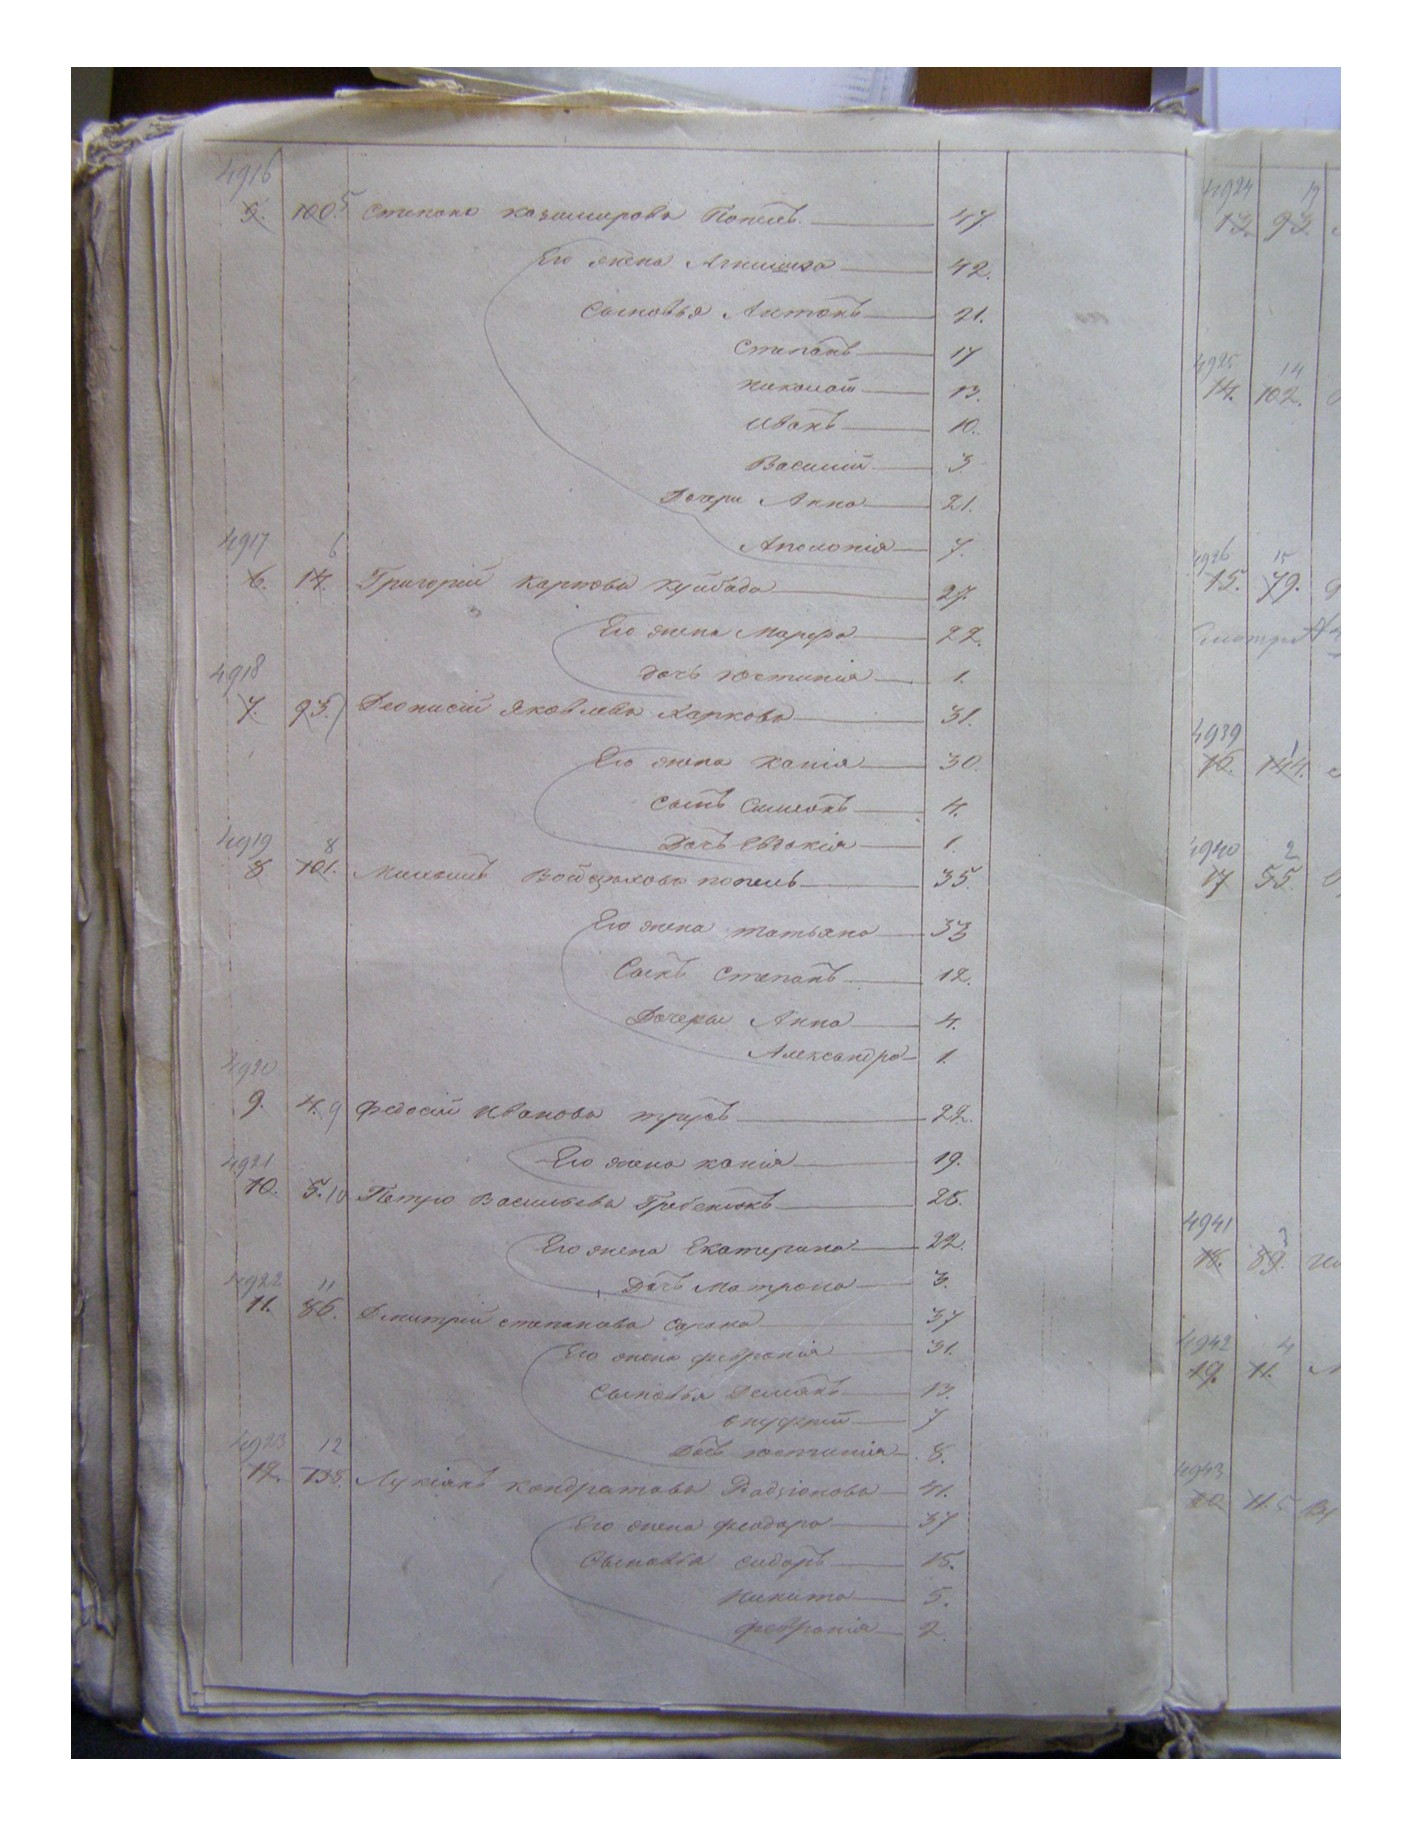 4916
5. 100. 5 Степанъ Казимировъ Попель 47.
Его жена Агнишка 42.
Сыновья Антонъ 21.
Степанъ 17
Николай 13.
Иванъ 10.
Василій 3
Дочери Анна 21.
Аполонія 7.
4917 6
6. 14. Григорій Карповъ Куйбада 27.
Его жена Марфа 22.
Дочь Юстинія 1.
4918
7. 93. 7 Деонисій Яковлевъ Карковъ 31.
Его жена Ксенія 30.
Сынъ Симеонъ 4.
Дочь Евдокія 1.
4919 8
8 101. Михаилъ Войцѣховъ Попель 35.
Его жена Татьяна 33
Сынъ Степанъ 12.
Дочери Анна 4.
Александра 1.
4920
9. 4. 9 Федосій Ивановъ 22.
Его жена Ксенія 19.
4921
10. 5. 10 Петро Васильевъ Гребенюкъ 25.
Его жена Екатерина 22.
Дочь Матрона 3.
4922 11
11. 86. Дмитрій Степановъ Сорока 37
Его жена Февронія 31.
Сыновья Демянъ 13.
Онуфрій 7
Дочь Юстинія 8.
4923 12
12. 135. Лукіянъ Кондратовъ Радіоновъ 41.
Его жена Феодора 37
Сыновья Сидоръ 15.
Никита 5.
Февронія 2.
4924 13
13. 93.
4925 14
14. 102.
4926 15
15. 79.
Смотри
4939 1
16. 144.
4940 2
17 55.
4941 3
18. 89.
4942 4
19. 11.
4943
20 115